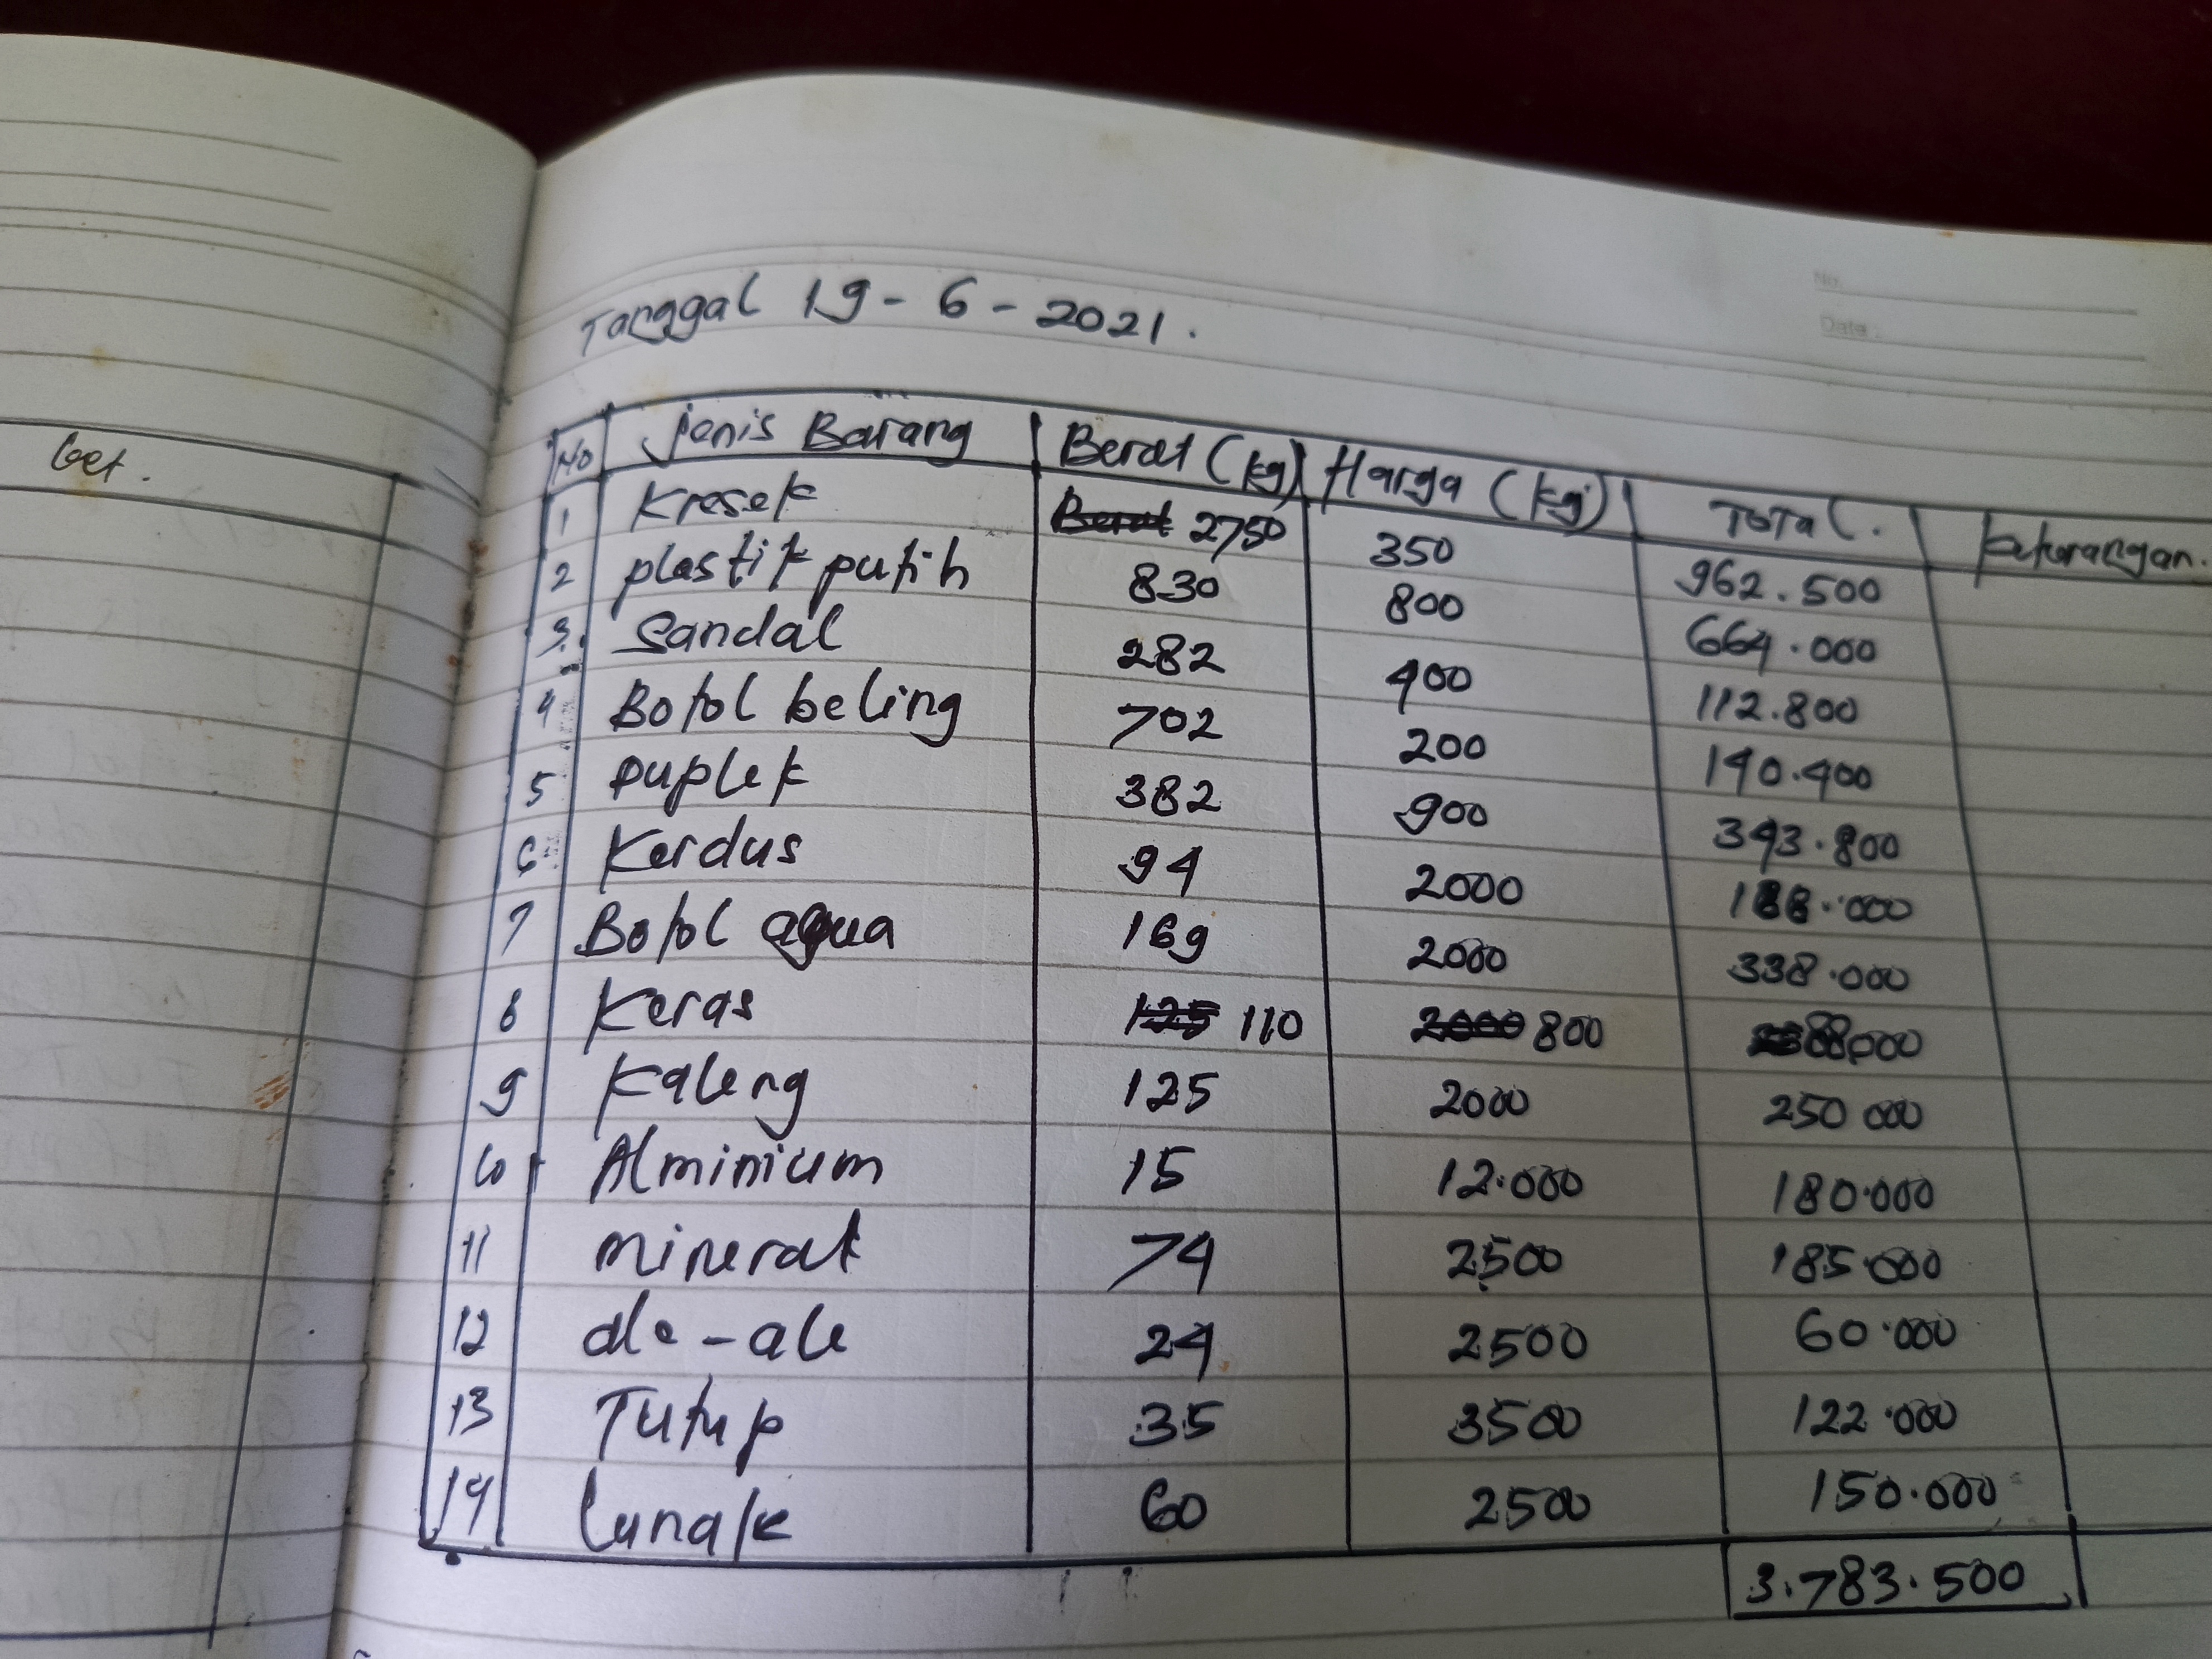 No.
Date :
Tanggal 19 - 6 - 2021.
Ket.
No Jenis Barang Berat (kg) Harga (kg) Total. keterangan.
1 Kresek 2750 350 962.500
2 plastik putih 830 800 664.000
3. Sandal 282 400 112.800
4 Botol beling 702 200 140.400
5 puplek 382 900 343.800
6 Kardus 94 2000 188.000
7 Botol aqua 169 2000 338.000
8 Keras 125 110 2000 800 88.000
9 Kaleng 125 2000 250 000
10 Alminium 15 12.000 180.000
11 mineral 74 2500 185.000
12 ale-ale 24 2500 60.000
13 Tutup 35 3500 122.000
14 lunak 60 2500 150.000
3.783.500